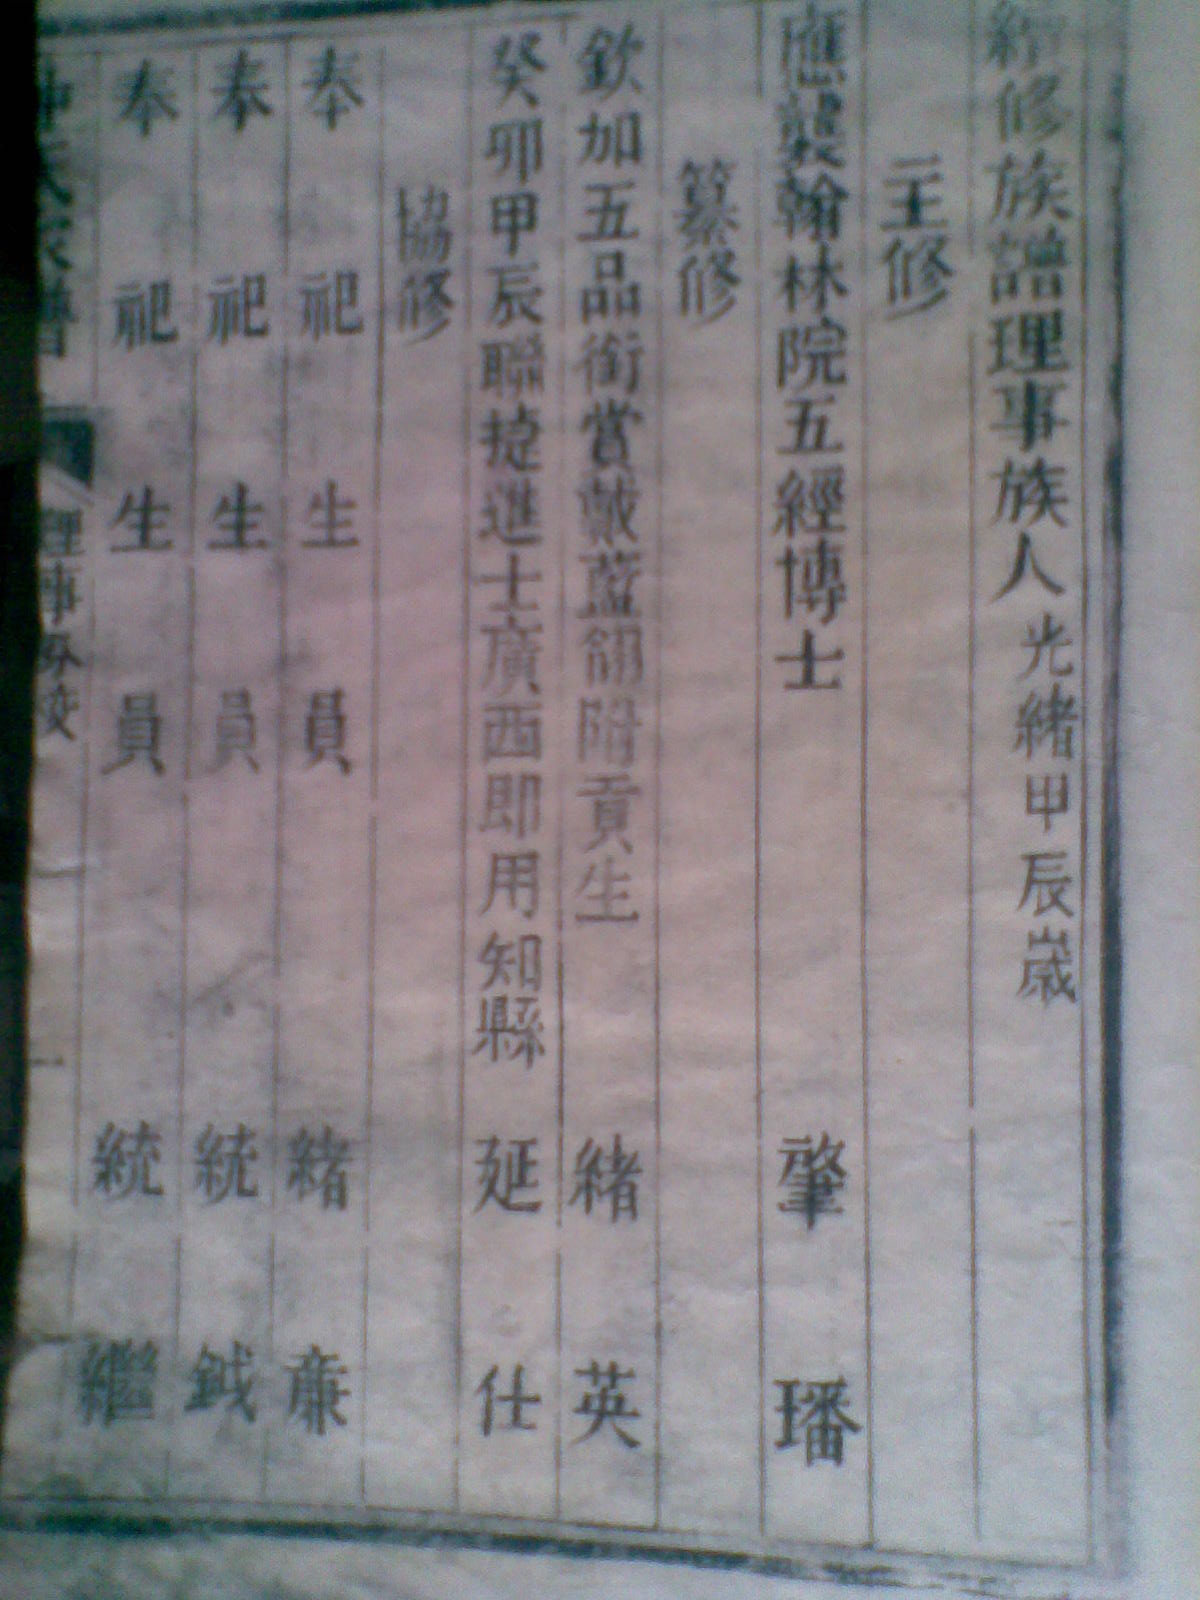 續修族譜理事族人光緒甲辰歲
主修
應襲翰林院五經博士肇璠
纂修
欽加五品銜賞戴藍翎附貢生緒英
癸卯甲辰聯捷進士廣西即用知縣延仕
協修
奉祀生員緒廉
奉祀生員統鉞
奉祀生員統繼
仲氏家譜 理事 一